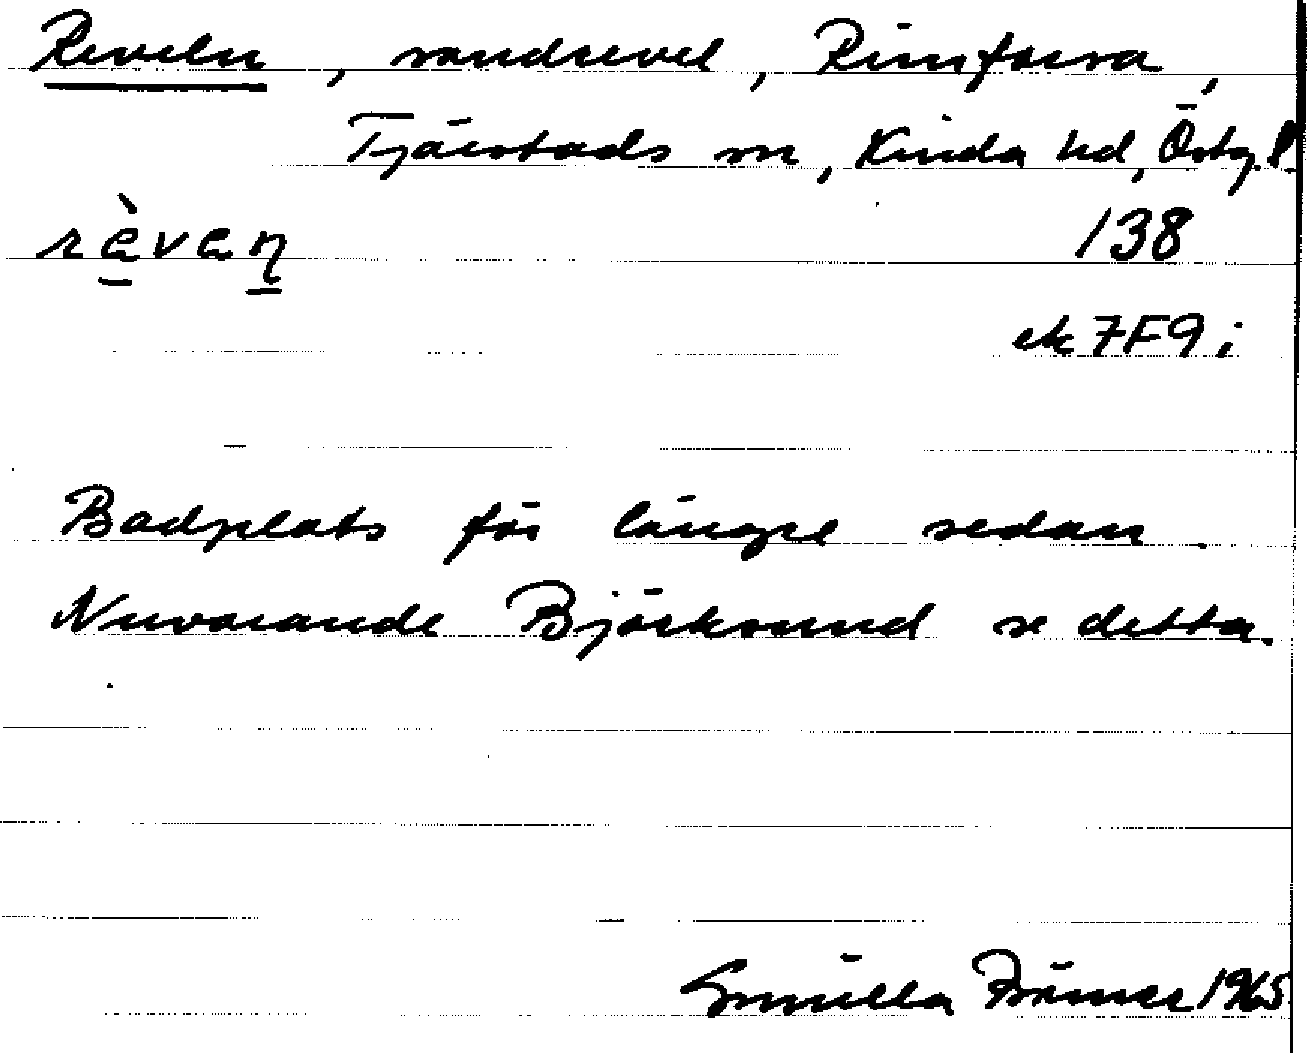 Reveln, sandrevel, Rimforsa,
Tjärstads sn, Kinda hd, Östg. l.
rèven 138
ek 7F9i
Badplats för längre sedan.
Nuvarande Björksund se detta.
Gunilla 1965